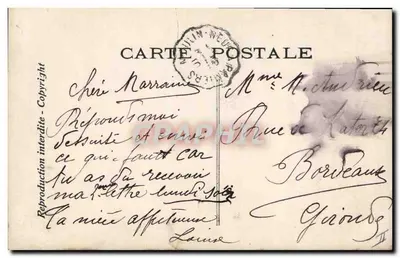 CARTE POSTALE
MOULIN-NEUF A PAMIERS
Reproduction interdite - Copyright
Chère Marraine
Réponds moi
de suite et
ce qui faut Car
tu as du recevoir
ma lettre lundi soir
ta nièce affectueuse
Louise
Mme
Rue de
Bordeaux
Gironde